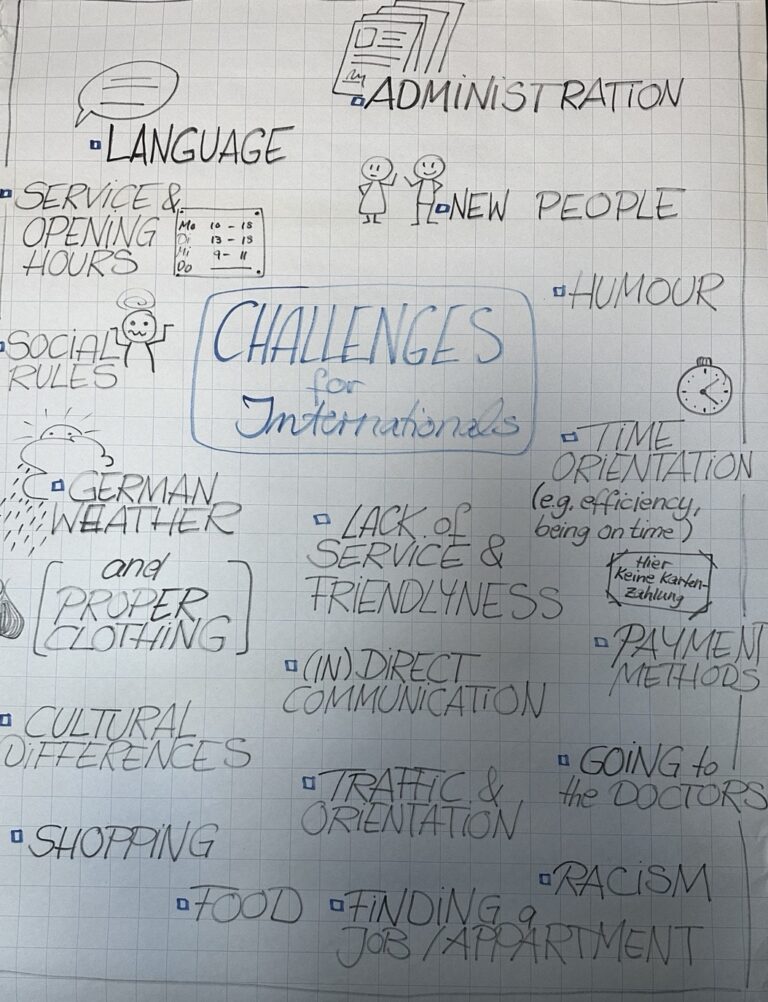 ADMINISTRATION
LANGUAGE
SERVICE &
OPENING
HOURS
Mo 10 - 18
Di 13 - 19
Mi 9 - 11
Do
NEW PEOPLE
HUMOUR
CHALLENGES
for
Internationals
SOCIAL
RULES
TIME
ORIENTATION
(e.g. efficiency,
being on time)
GERMAN
WEATHER
and
PROPER
CLOTHING
LACK of
SERVICE &
FRIENDLYNESS
Hier
Keine Karten-
zahlung
PAYMENT
METHODS
(IN)DIRECT
COMMUNICATION
CULTURAL
DIFFERENCES
GOING to
the DOCTORS
TRAFFIC &
ORIENTATION
SHOPPING
RACISM
FOOD
FINDING a
JOB / APPARTMENT